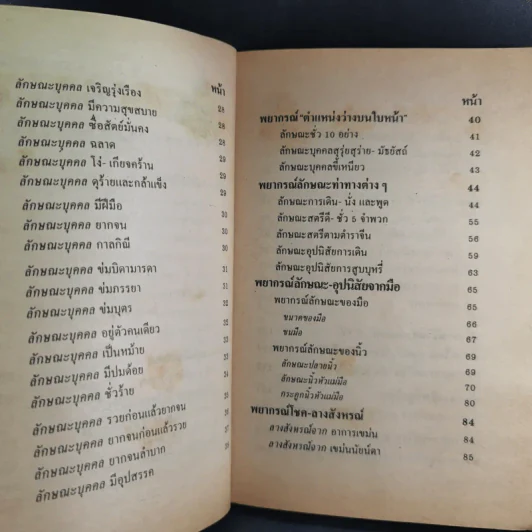 หน้า
ลักษณะบุคคล เจริญรุ่งเรือง 28
ลักษณะบุคคล มีความสุขสบาย 28
ลักษณะบุคคล ซื่อสัตย์มั่นคง 28
ลักษณะบุคคล ฉลาด 29
ลักษณะบุคคล โง่- เกียจคร้าน 29
ลักษณะบุคคล ดุร้ายและกล้าแข็ง 29
ลักษณะบุคคล มีฝีมือ 30
ลักษณะบุคคล ยากจน 30
ลักษณะบุคคล กาลกิณี
ลักษณะบุคคล ข่มบิดามารดา
ลักษณะบุคคล ข่มภรรยา
ลักษณะบุคคล ข่มบุตร
ลักษณะบุคคล อยู่ตัวคนเดียว
ลักษณะบุคคล เป็นหม้าย
ลักษณะบุคคล มีปมด้อย
ลักษณะบุคคล ชั่วร้าย
ลักษณะบุคคล รวยก่อนแล้วยากจน
ลักษณะบุคคล ยากจนก่อนแล้วรวย
ลักษณะบุคคล ยากจนลำบาก
ลักษณะบุคคล มีอุปสรรค
หน้า
พยากรณ์"ตำแหน่งว่างบนใบหน้า" 40
ลักษณะชั่ว 10 อย่าง 41
ลักษณะบุคคลสุรุ่ยสุร่าย- มัธยัสถ์ 42
ลักษณะบุคคลขี้เหนียว 43
พยากรณ์ลักษณะท่าทางต่าง ๆ 44
ลักษณะการเดิน- นั่ง และพูด 44
ลักษณะสตรีดี- ชั่ว 5 จำพวก 55
ลักษณะสตรีตามตำราจีน 56
ลักษณะอุปนิสัยการเดิน 59
ลักษณะอุปนิสัยการสูบบุหรี่ 63
พยากรณ์ลักษณะ-อุปนิสัยจากมือ 65
พยากรณ์ลักษณะของมือ 65
ขนาดของมือ 66
ขนมือ 67
พยากรณ์ลักษณะของนิ้ว 69
ลักษณะปลายนิ้ว 69
ลักษณะนิ้วหัวแม่มือ 70
กระดูกนิ้วหัวแม่มือ 80
พยากรณ์โชค-ลางสังหรณ์ 84
ลางสังหรณ์จาก อาการเขม่น 84
ลางสังหรณ์จาก เขม่นนัยน์ตา 85